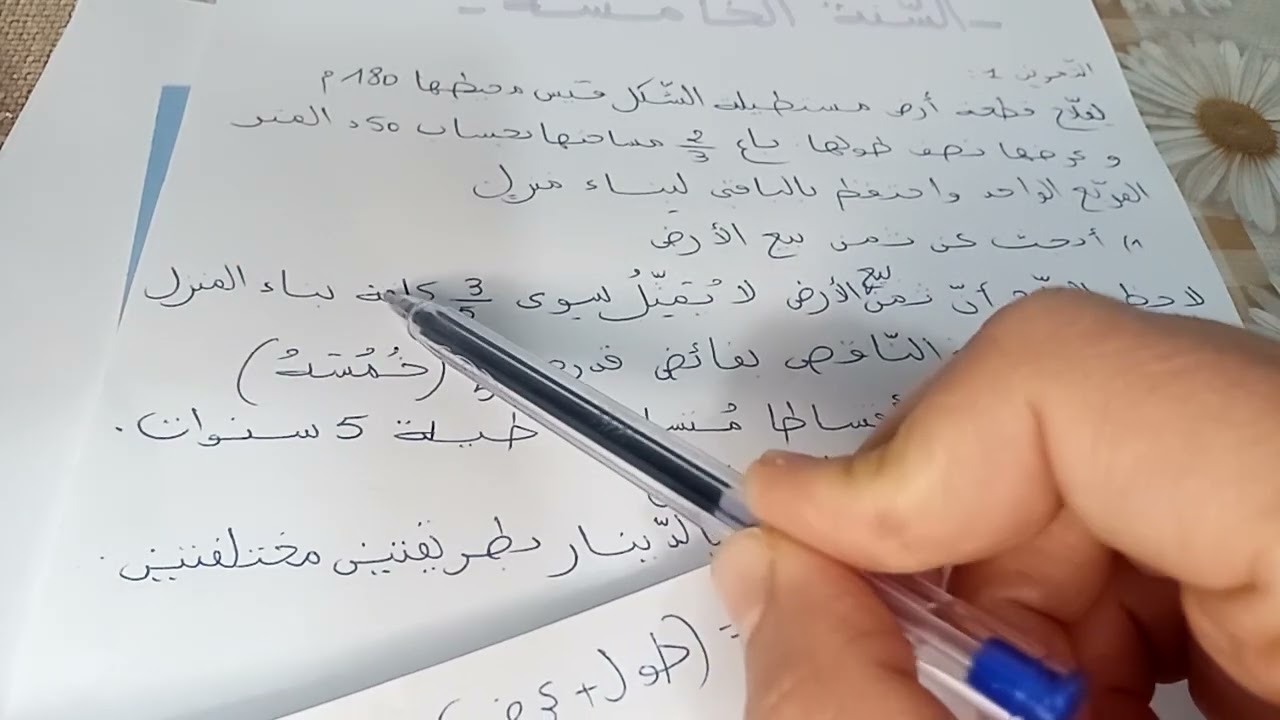 - السّنة الخامسة -
التمرين 1:
لفلاّح قطعة أرض مستطيلة الشّكل قيس محيطها 180 م
و عرضها نصف طولها باع 2/3 مساحتها بحساب 50د المتر
المربّع الواحد واحتفظ بالباقي لبناء منزل
1) أبحث عن ثمن بيع الأرض
لاحظ أنّ ثمن بيع الأرض لا تُمَثِّلُ سوى 3/5 كلفة بناء المنزل
النّاقص بفائض قدره (خُمُسَهُ)
طيلة 5 سنوات.
بالدّينار بطريقتين مختلفتين.
= (طول + عرض)